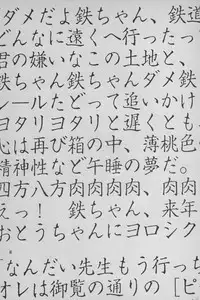 ダメだよ鉄ちゃん、鉄道
どんなに遠くへ行ったっ
君の嫌いなこの土地と、
鉄ちゃん鉄ちゃんダメ鉄
レールたどって追いかけ
ヨタリヨタリと遅くとも、
心は再び箱の中、薄桃色
精神性など午睡の夢だ。
四方八方肉肉肉、肉肉
えっ!　鉄ちゃん、来年
おとうちゃんにヨロシク
なんだい先生もう行っち
オレは御覧の通りの[ピ